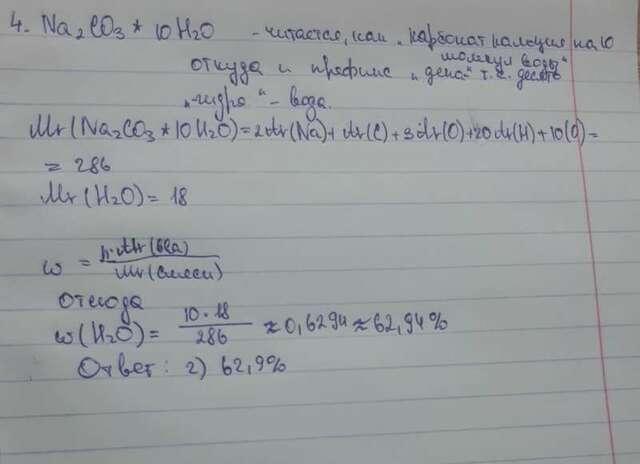 4. Na₂CO₃ * 10H₂O - читается, как „карбонат кальция на 10
молекул воды"
откуда и префикс „дека" т.е. десять
„гидро" - вода.
Mr(Na₂CO₃ * 10H₂O) = 2Ar(Na) + Ar(C) + 3Ar(O) + 20Ar(H) + 10(O) =
= 286
Mr(H₂O) = 18
ω = n·Mr(в-ва) / Mr(смеси)
Отсюда
ω(H₂O) = 10 · 18 / 286 ≈ 0,6294 ≈ 62,94%
Ответ: 2) 62,9%